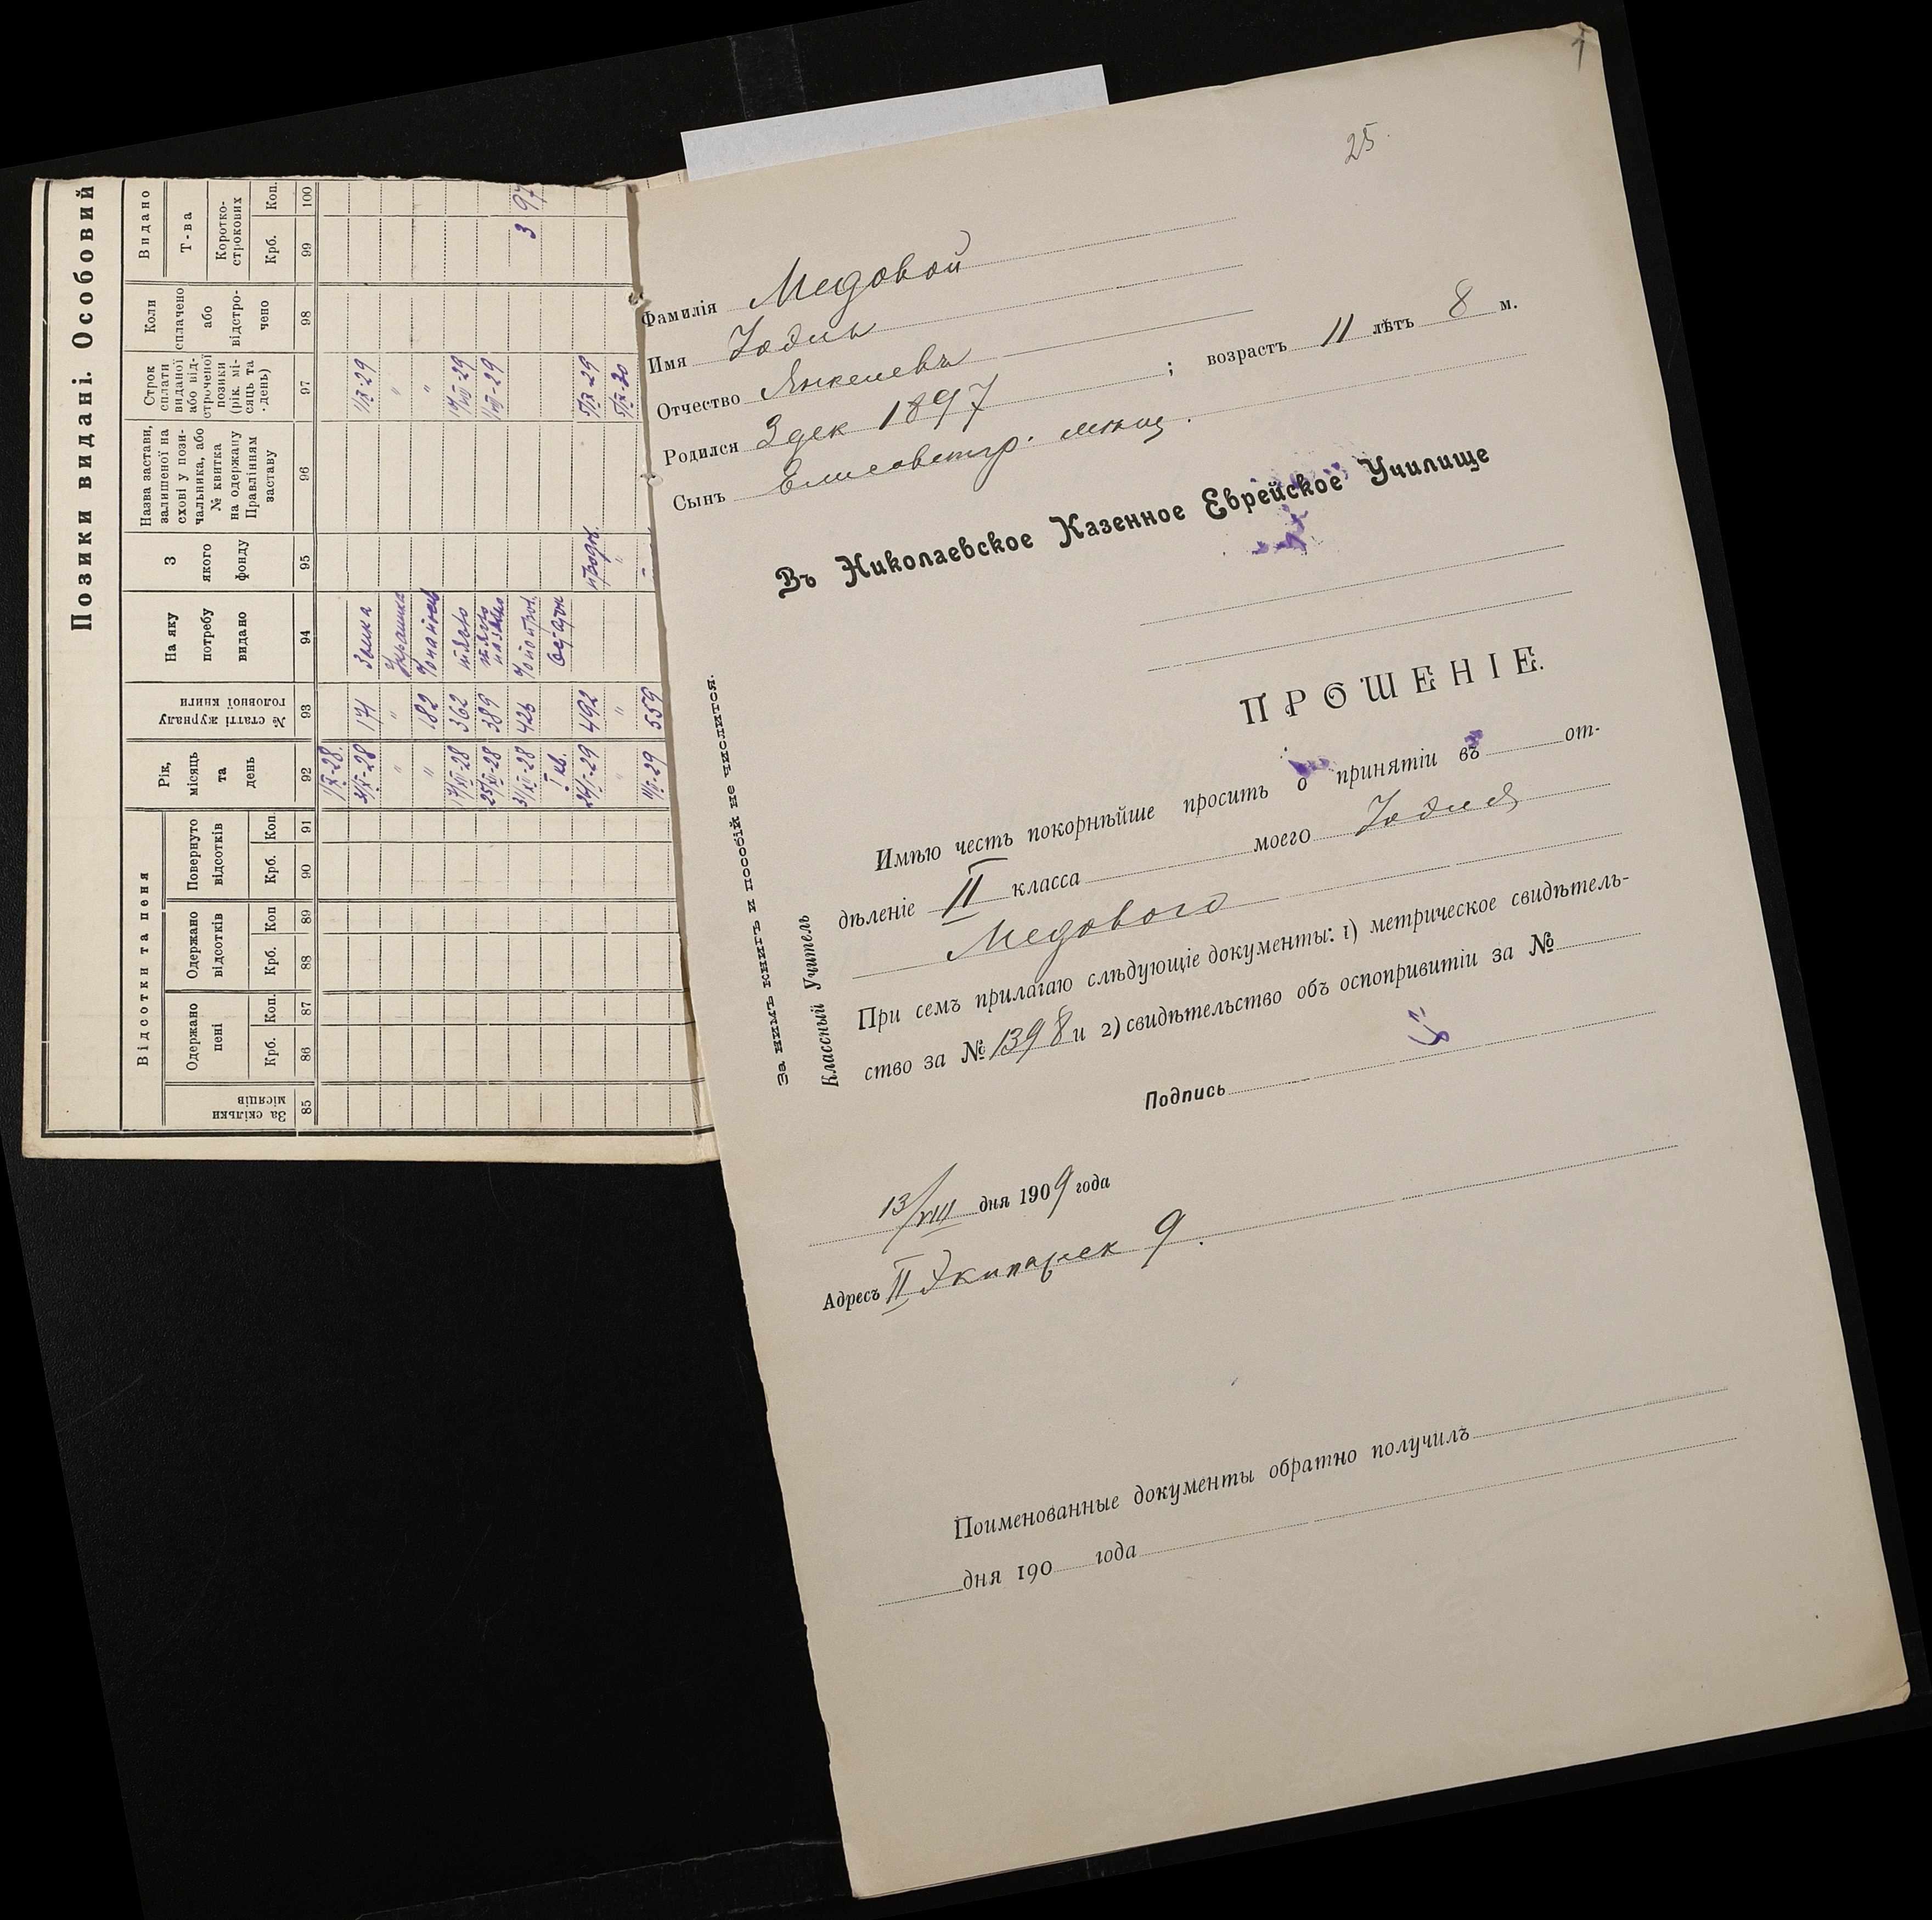 Позики видані. Особовий
Відсотки та пеня
Видано
За скільки місяців
Одержано пені
Одержано відсотків
Повернуто відсотків
Рік, місяць та день
№ статті журналу головної книги
На яку потребу видано
З якого фонду
Назва застави, залишеної на схові у пози-чальника, або № квитка на одержану Правлінням заставу
Строк сплати виданої або від-строченої позики (рік, мі-сяць та день)
Коли сплачено або відстро-чено
Т-ва
Коротко-строкових
Крб. Коп. Крб. Коп Крб. Коп. Крб. Коп.
85 86 87 88 89 90 91 92 93 94 95 96 97 98 99 100
1/X-28.
171 1/IX-29
" " "
" 182 "
17/XII-28 362 17/VIII-29
25/XII-28 389 1/VIII-29
31/XII-28 426 3 97
I кв.
24/I-29 492 5/IX-29
" "
559
1
25.
Фамилія Медовой
Имя Іодль
Отчество Янкелевъ
Родился 3 дек 1897 ; возрастъ 11 лѣтъ 8 м.
Сынъ Елисаветгр. мѣщ.
Въ Николаевское Казенное Еврейское Училище
ПРОШЕНІЕ.
Имѣю честь покорнѣйше просить о принятіи въ от-
дѣленіе II класса моего Іодля
Медового
При семъ прилагаю слѣдующіе документы: 1) метрическое свидѣтель-
ство за № 1398 и 2) свидѣтельство объ оспопривитіи за №
Подпись
13/VIII дня 1909 года
Адресъ II Экипажск 9.
Поименованные документы обратно получилъ
дня 190 года
За нимъ книгъ и пособій не числится.
Классный Учитель